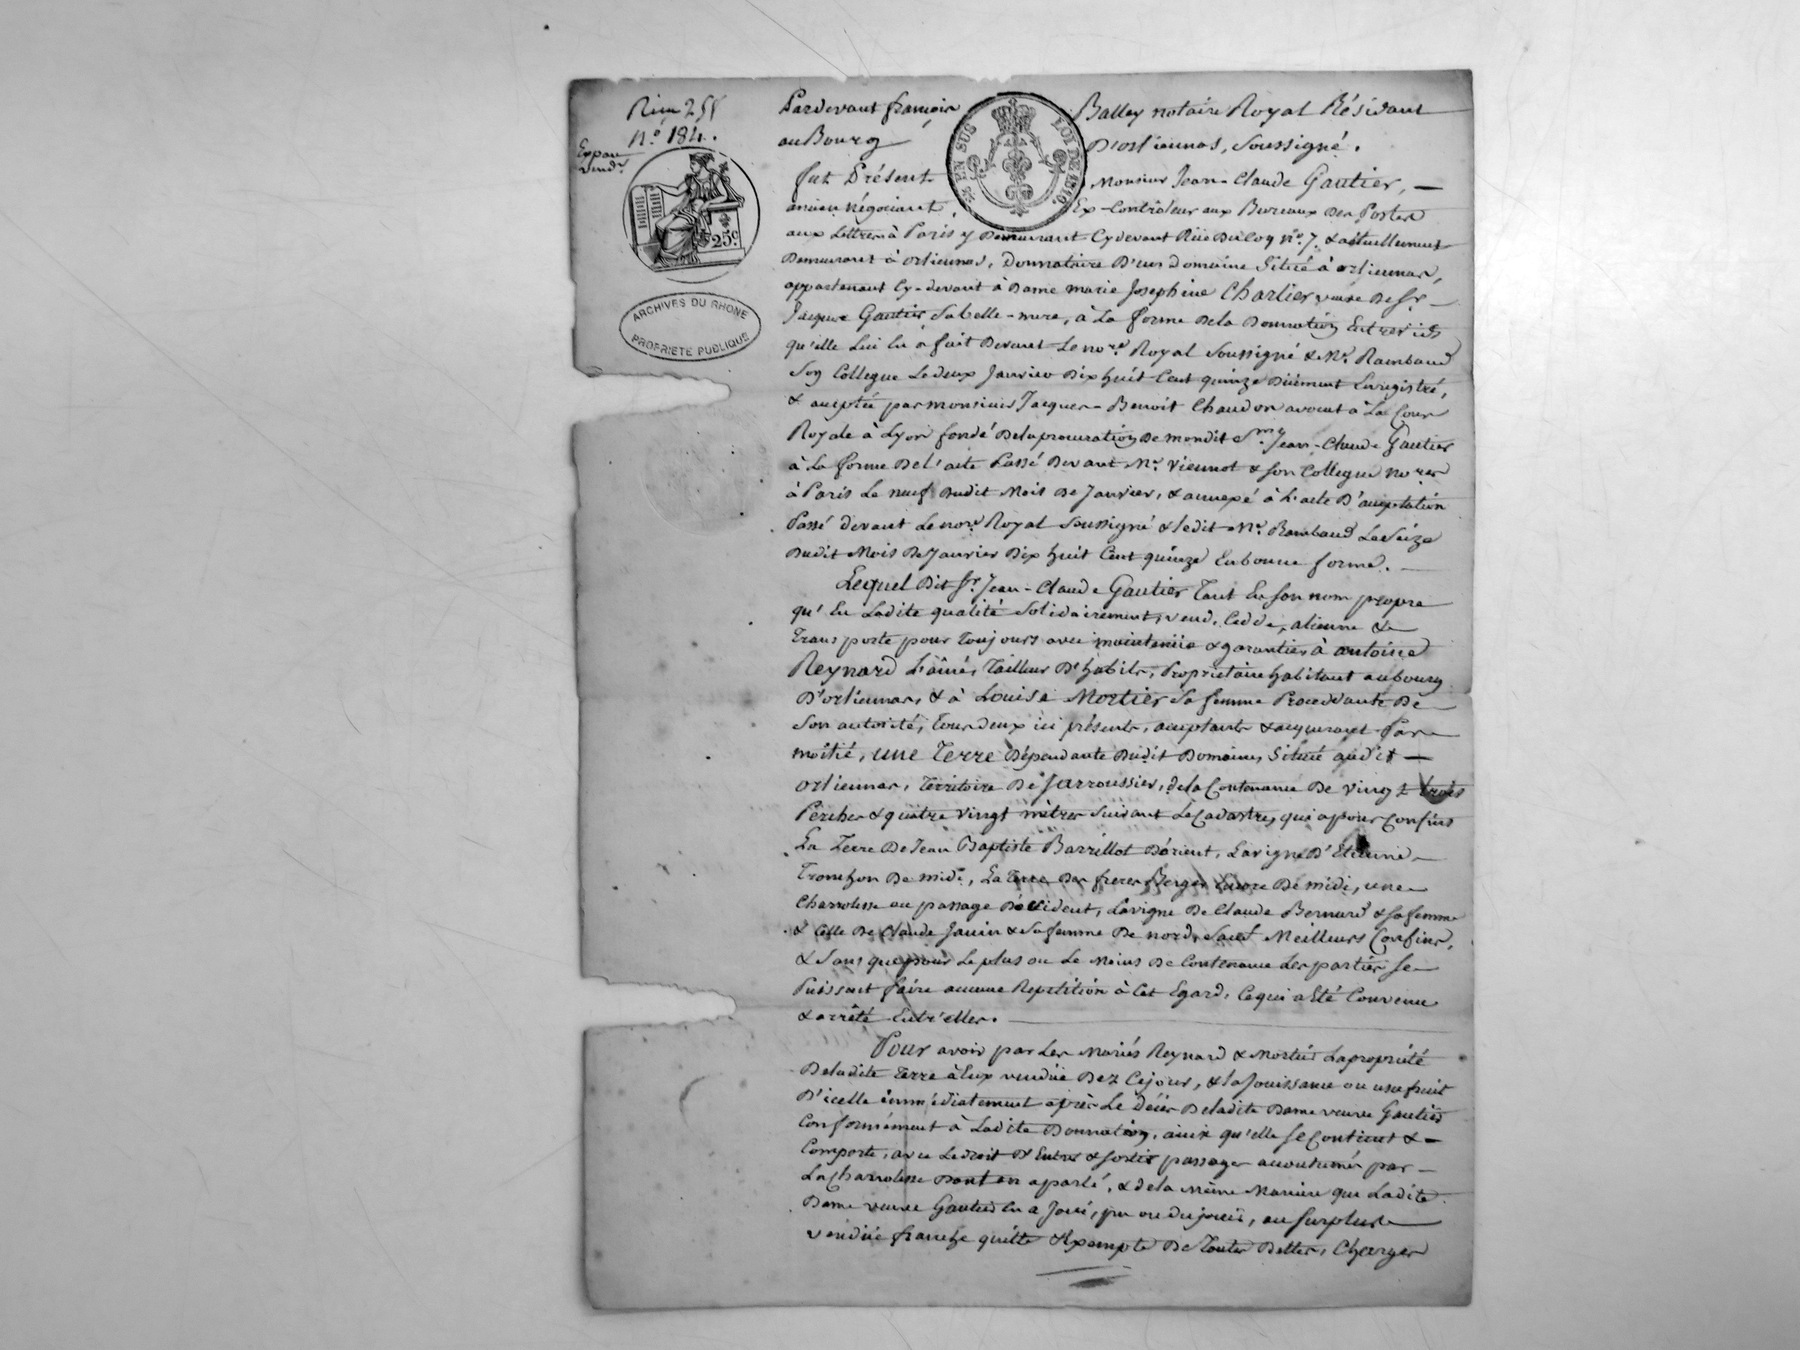 N.º 184.
Expon
Vend.r
25.c
ARCHIVES DU RHONE
PROPRIETE PUBLIQUE
EN SUS LOI DE 1816
Pardevant françois Balley notaire Royal Résidant
au Bourg D'orlienas, Soussigné.
fut Présent Monsieur Jean-Claude Gautier, —
ancien négociant, Ex-Contrôleur aux Bureaux Des Postes
aux Lettres à Paris y Demeurant Cydevant Rüe Du Coq n.º 7. & actuellement
Demeurant à orlienas, Donnataire D'un Domaine Situé à orlienas,
appartenant Cy-devant à Dame marie Josephine Charlier veuve De Sr. —
Jacques Gautier, Sa belle-mere, à La forme De la Donnation Entrevifs
qu'elle Lui En a fait Devant Le no.re Royal Soussigné & M.e Rambaud
Son Collegue Le deux Janvier Dix huit Cent quinze Düement Enregistré,
& acceptée par monsieur Jacques-Benoit Chaudon avocat à La Cour
Royale à Lyon fondé De la procuration De mondit Jean-Claude Gautier
à La forme De L'acte Passé Devant M.e Viennot & Son Collegue no.res
à Paris Le neuf Dudit Mois De Janvier, & annexé à L'acte D'acceptation
Passé devant Le no.re Royal Soussigné & ledit M.e Rambaud Le Seize
Dudit Mois De Janvier Dix huit Cent quinze En bonne forme. —
Lequel Dit Sr. Jean-Claude Gautier Tant En Son nom propre
qu'En Ladite qualité Solidairement, vend, Cedde, aliene &
Transporte pour Toujours avec maintenüe & garanties à antoine
Reynard L'aîné, Tailleur D'habits, Proprietaire habitant au bourg
D'orlienas, & à Louise Mortier Sa femme Procedante De
Son autorité, Tous deux ici présents, acceptants & acquerant Par
moitié, une Terre Dépendante Dudit Domaine, Situé audit —
orlienas, Territoire De Jarroussier, de la Contenance De vingt trois
Perches & quatre vingt mètres Suivant Le Cadastre, qui a pour Confins
La Terre De Jean Baptiste Barrillot D'orient, La vigne D'Etienne
Tronchon De midi, La Terre Des freres Berger Encore De midi, une
Charroliere au passage D'occident, La vigne De Claude Bernard & Sa femme
& Celle De Claude Jauin & Sa femme De nord, Sauf Meilleurs Confins,
& Sans que pour Le plus ou Le Moins De Contenance Les parties Se
Puissent faire aucune Repetition à Cet Egard, Ce qui a Eté Convenu
& arrêté Entr'elles. —
Pour avoir par Les Mariés Reynard & Mortier La propriété
De ladite Terre à Eux vendüe Dez Ce jour, & la Jouissance ou usufruit
D'icelle immédiatement après Le Décès De ladite Dame veuve Gautier
Conformément à Ladite Donnation, ainsi qu'elle Se Contient & —
Comporte, avec Le droit D'Entrer & Sortir passages accoutumés par —
La Charroliere Dont on a parlé, & de la Même Maniere que Ladite
Dame veuve Gautier En a Joui, pu ou du jouir, au Surplus
vendüe franche quitte & Exempte De Toutes Dettes, Charges